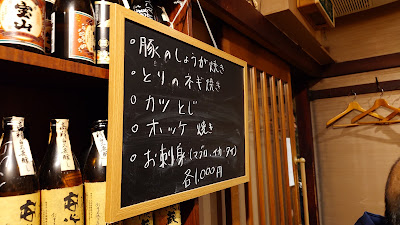 宝山
・豚のしょうが焼き
・とりのネギ焼き
・カツとじ
・ホッケ焼き
・お刺身(マグロ、イカ、タイ)
各1,000円